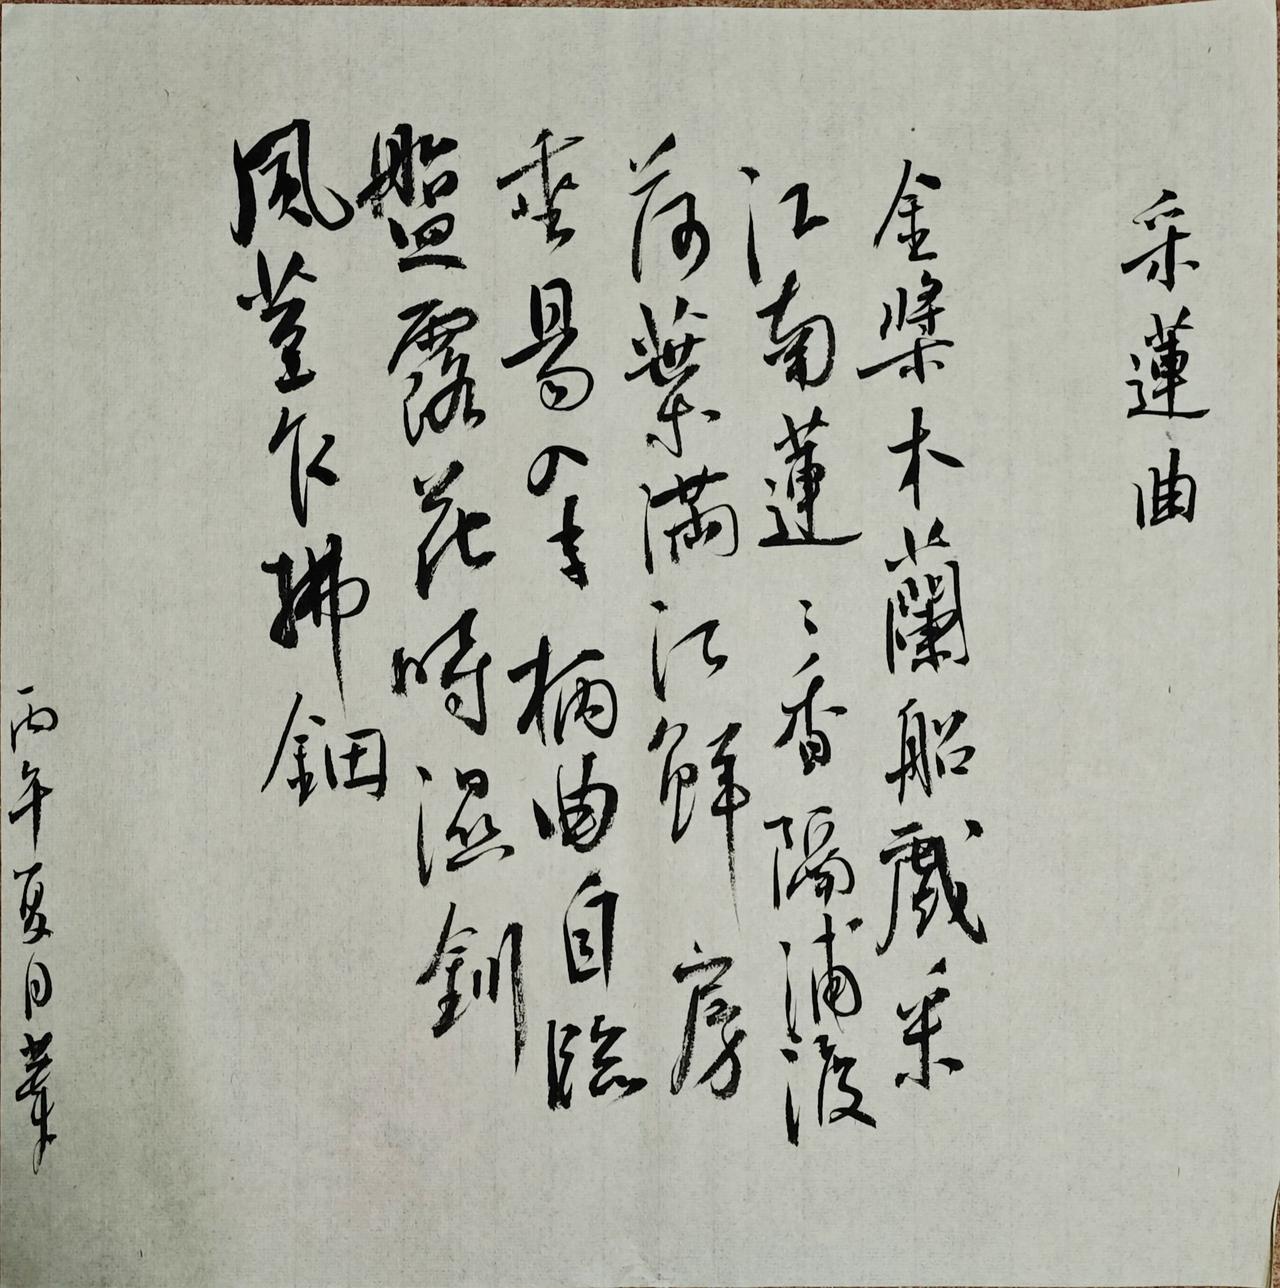 采蓮曲
金槳木蘭船戲采
江南蓮〻香隔浦渡
荷葉滿江鮮房
垂易入手柄曲自臨
盤露花時濕釧
風莖乍拂鈿
丙午夏日